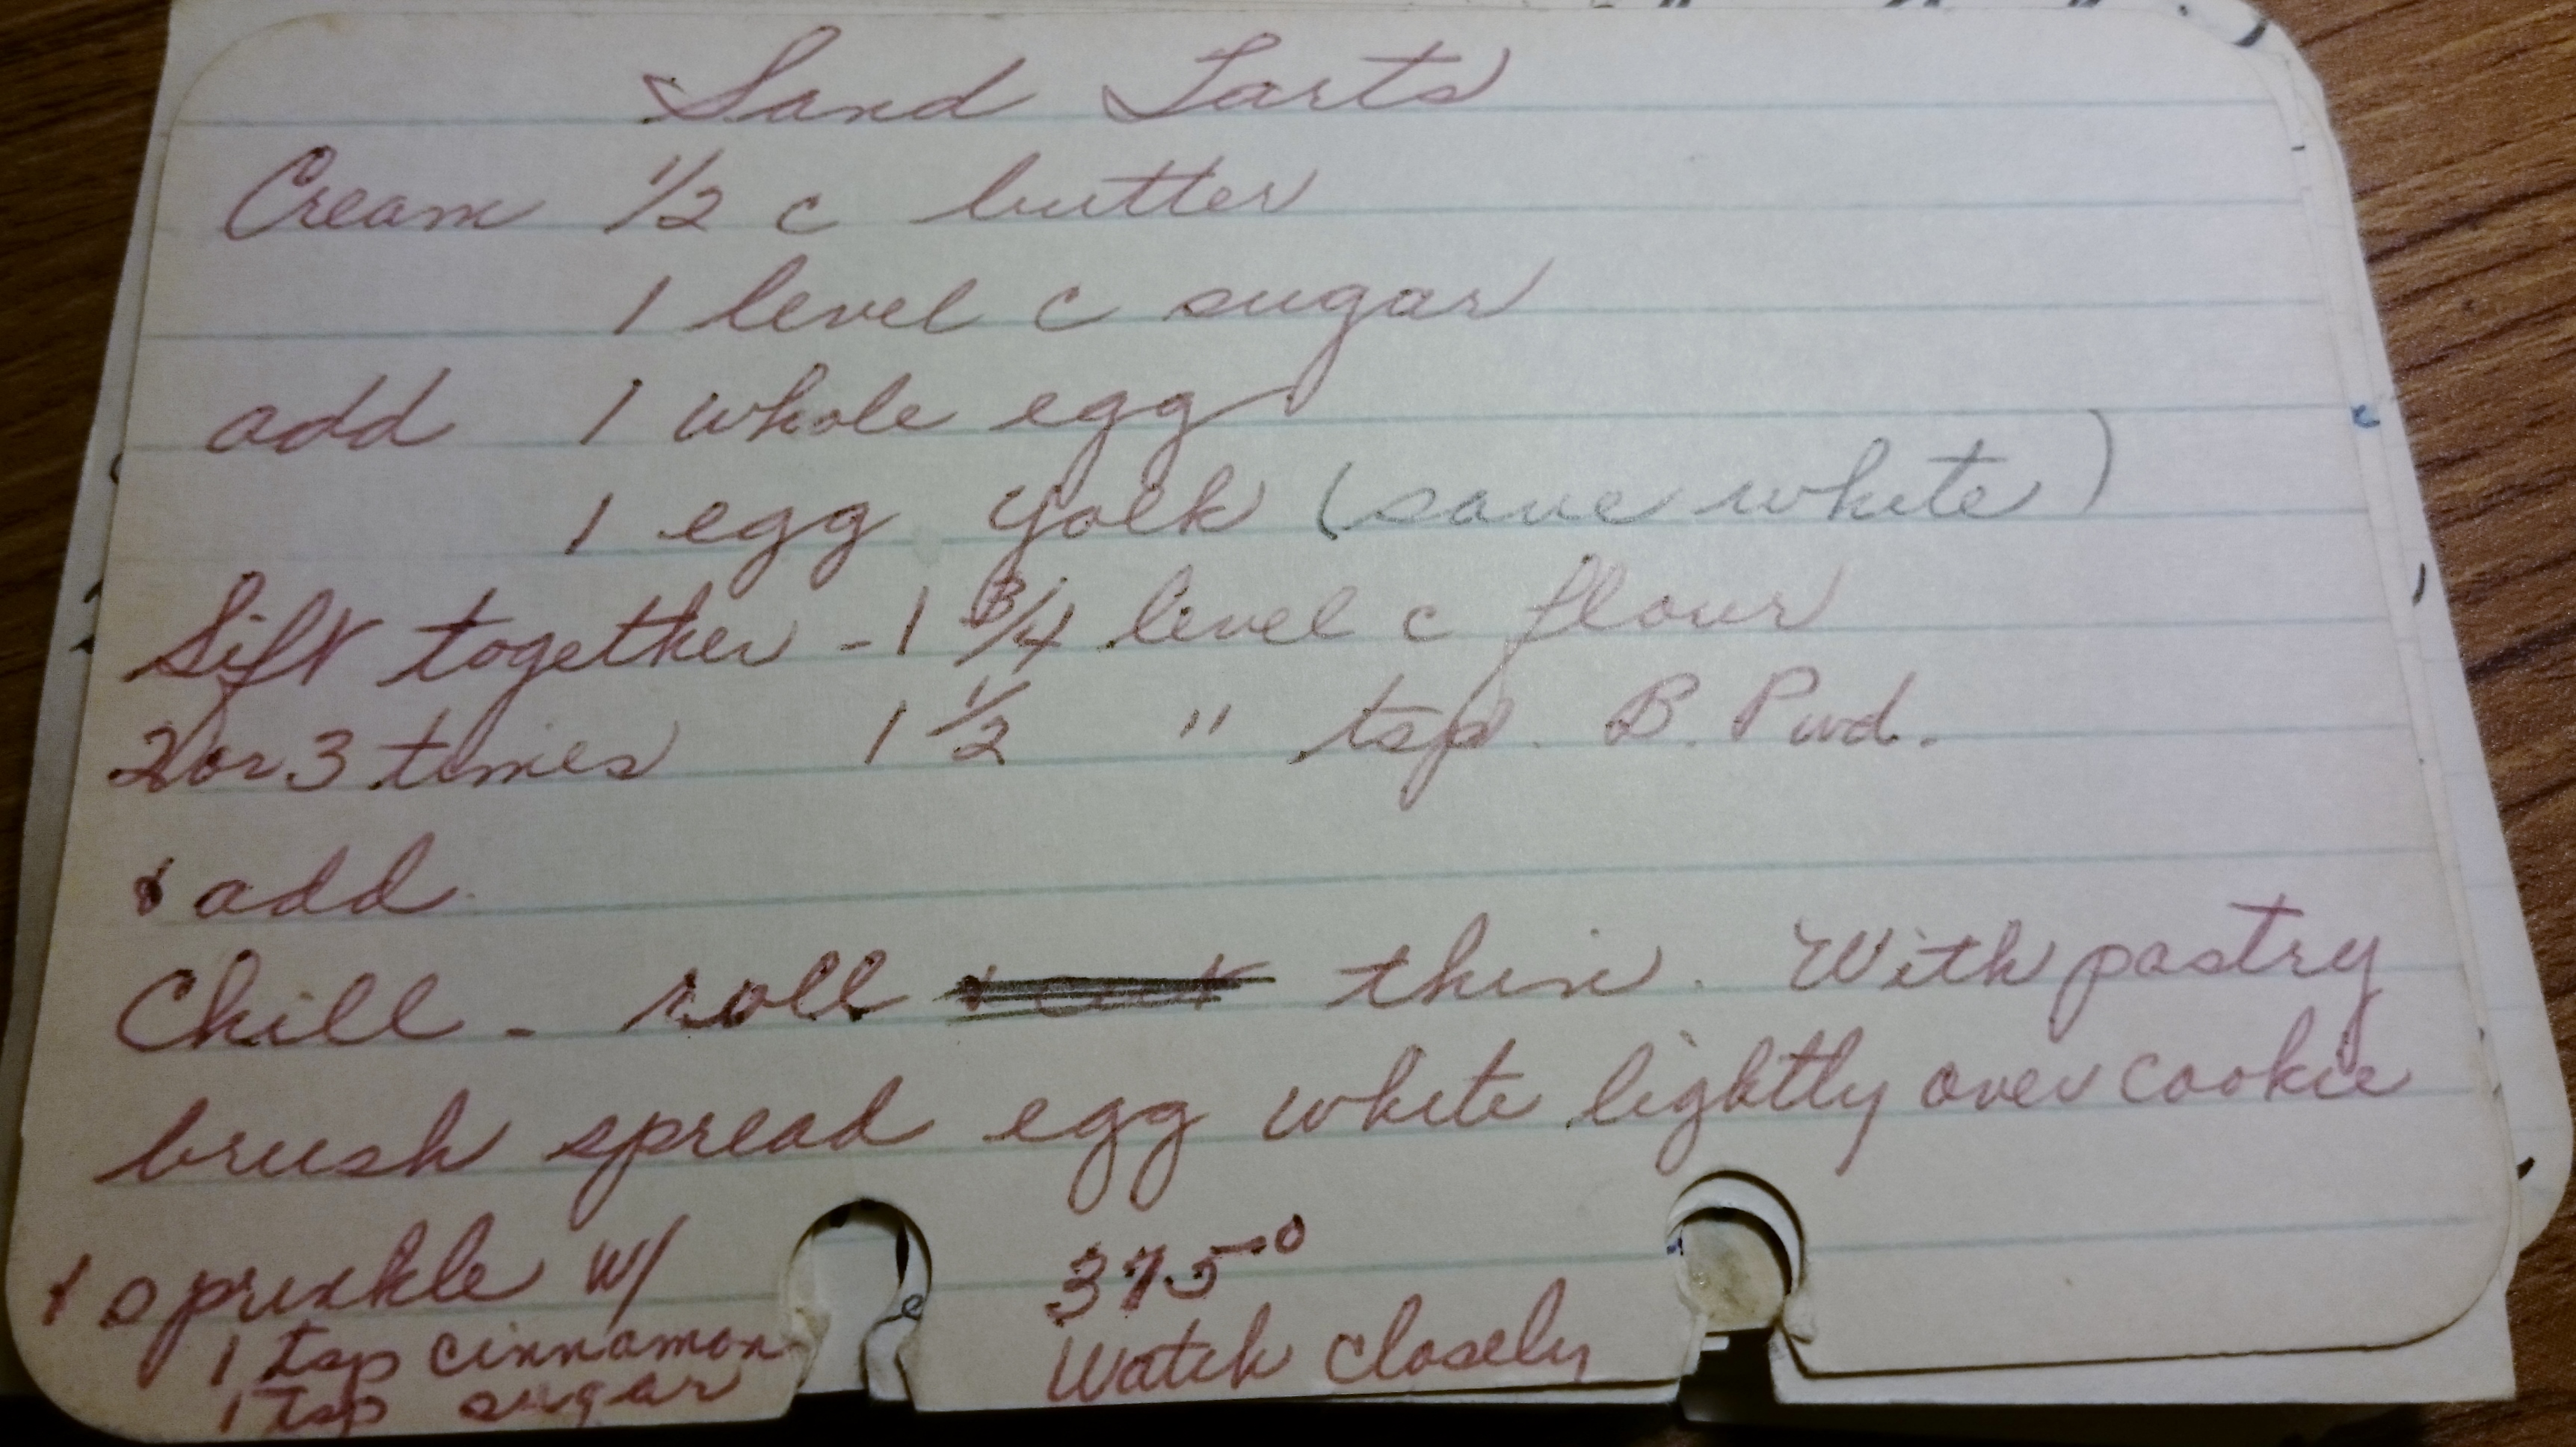 Sand Tarts
Cream 1/2 c butter
1 level c sugar
add 1 whole egg
1 egg yolk (save white)
Sift together - 1 3/4 level c flour
2 or 3 times 1 1/2 " tsp. B. Pwd.
& add
Chill - roll thin. With pastry
brush spread egg white lightly over cookie
& sprinkle w/ 375°
1 tsp cinnamon Watch closely
1 tsp sugar